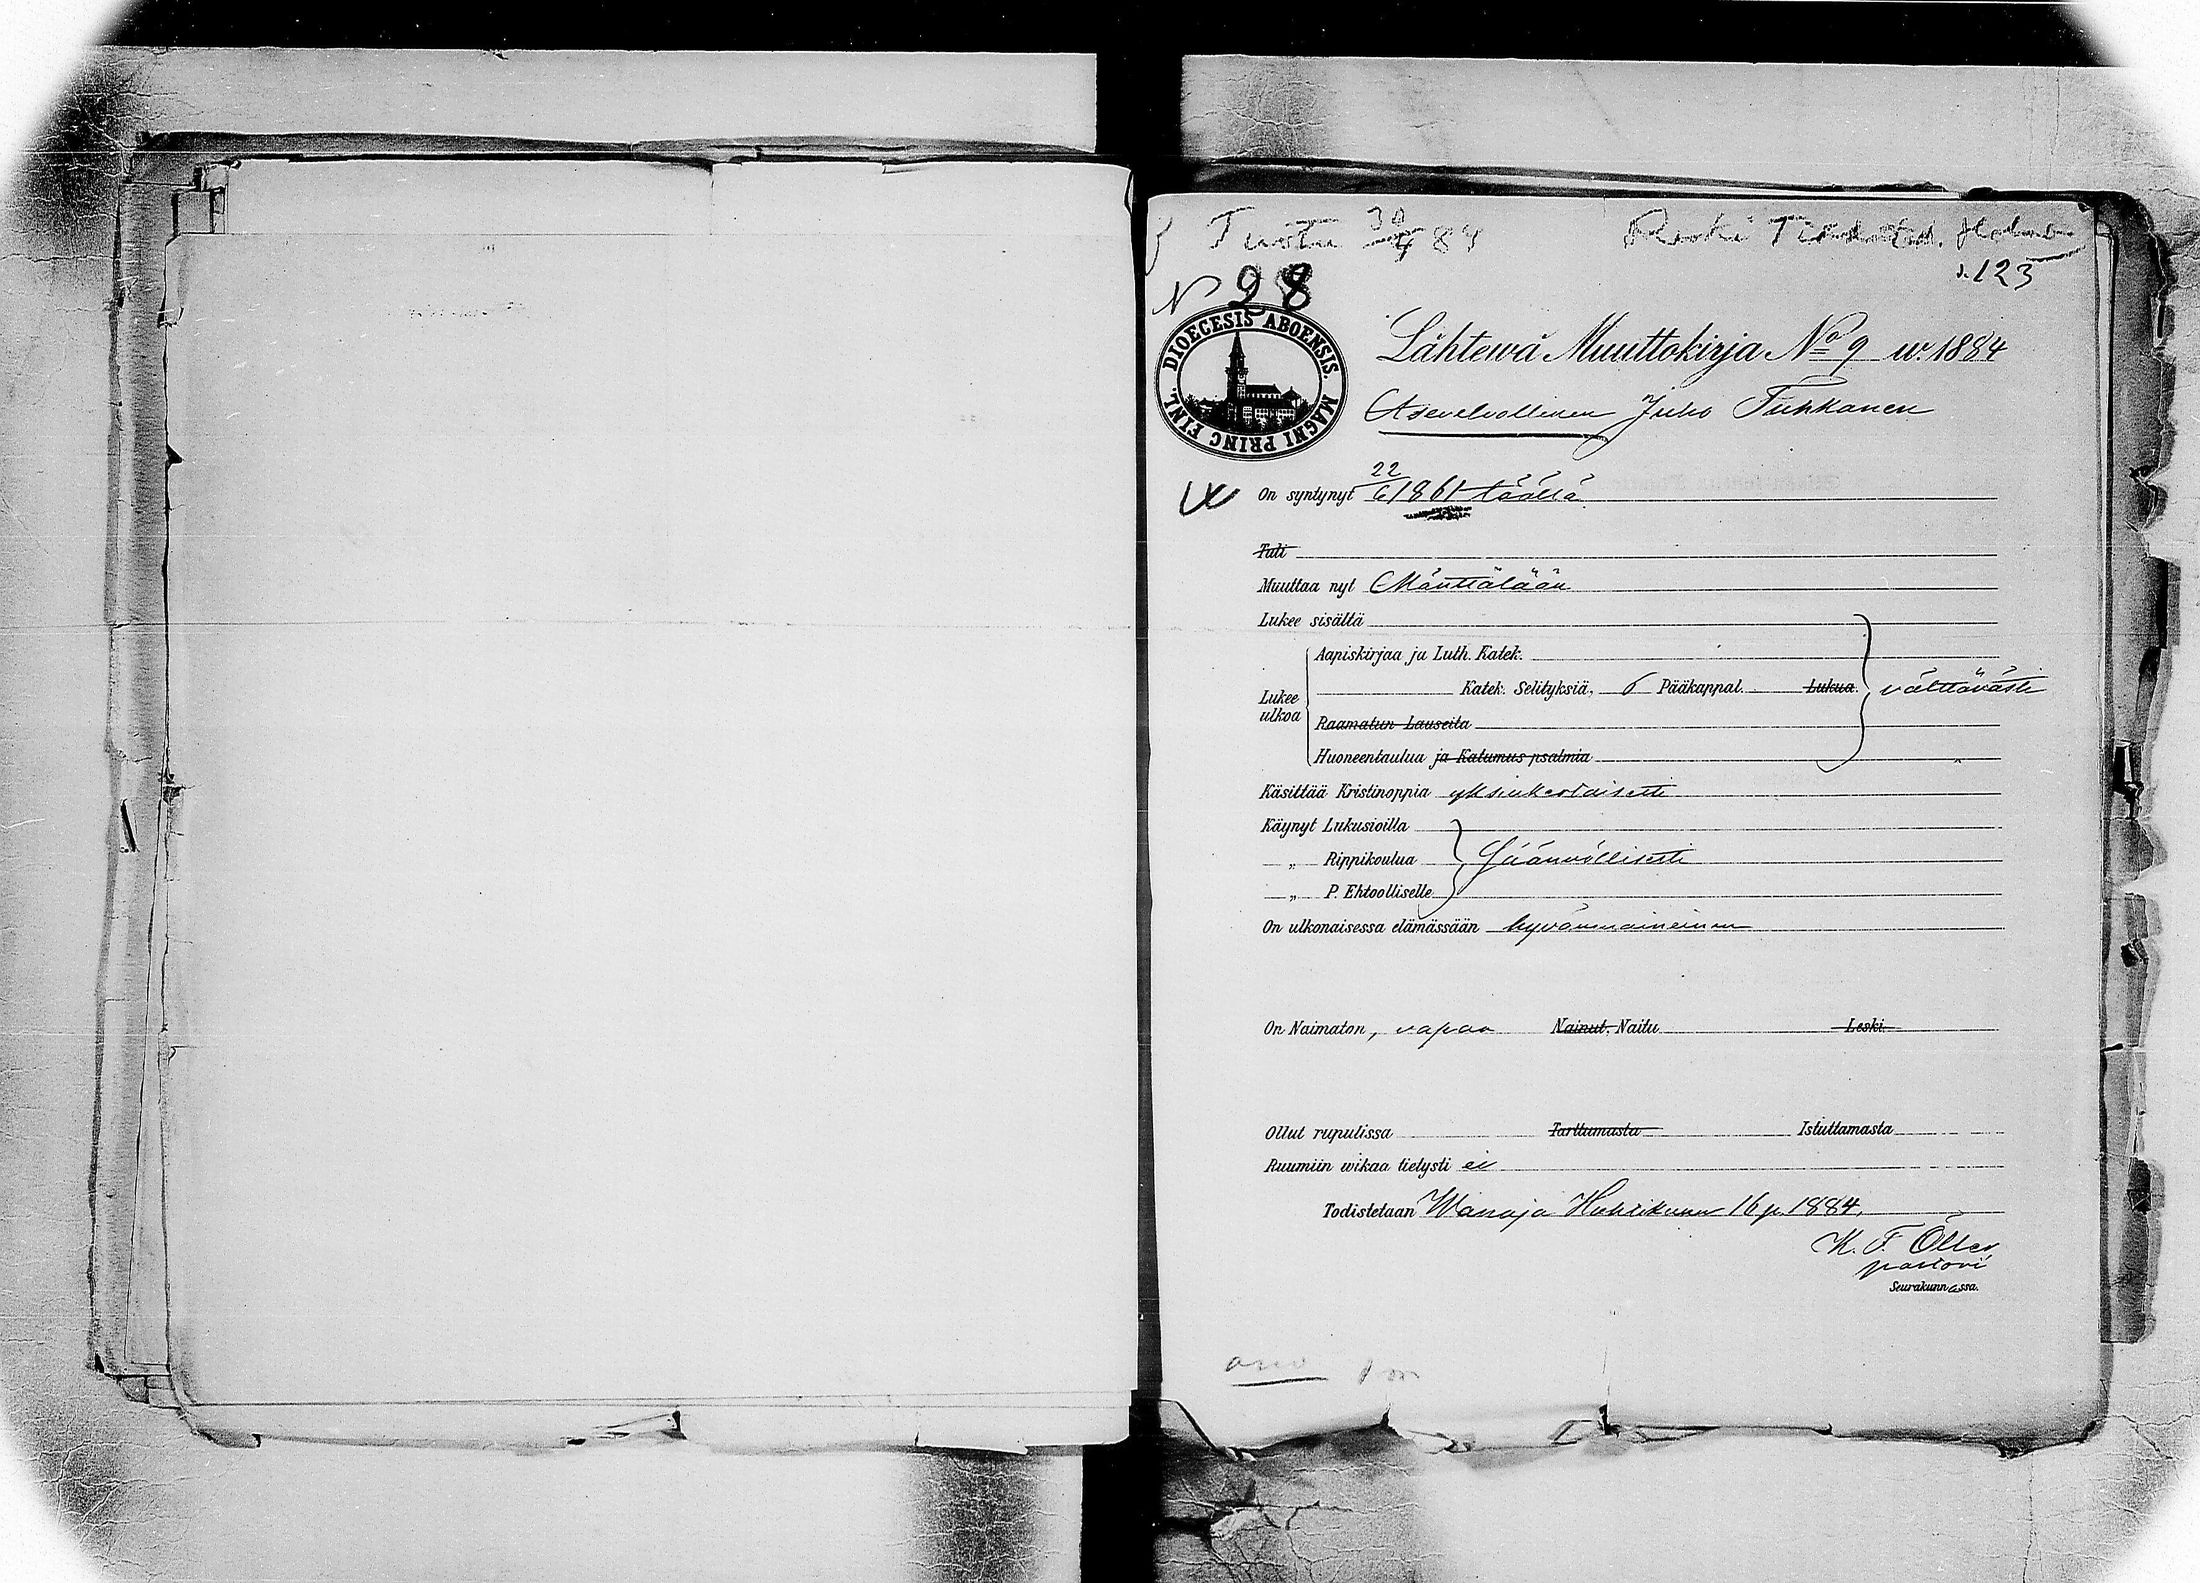 Tuotu 30/4 84
s. 123
N 98
DIOECESIS ABOENSIS. MAGNI PRINC FINL.
Lähtewä Muuttokirja No 9 w. 1884
Asevelvollinen Juho Tuhkanen
On syntynyt 22/6 1861 täällä
Tuli
Muuttaa nyt Mänttälään
Lukee sisältä
Aapiskirjaa ja Luth. Katek.
Lukee ulkoa
Katek. Selityksiä, 6 Pääkappal. Lukua. välttävästi
Raamatun Lauseita
Huoneentaulua ja Katumus psalmia
Käsittää Kristinoppia yksinkertaisesti
Käynyt Lukusioilla
„ Rippikoulua Säännöllisesti
„ P. Ehtoolliselle
On ulkonaisessa elämässään hyvänmaineinen
On Naimaton, vapaa Nainut. Naitu Leski.
Ollut rupulissa Tarttumasta Istuttamasta
Ruumiin wikaa tietysti ei
Todistetaan Wanaja Huhtikuun 16 p. 1884.
K. F. Öller
pastori
Seurakunnassa.